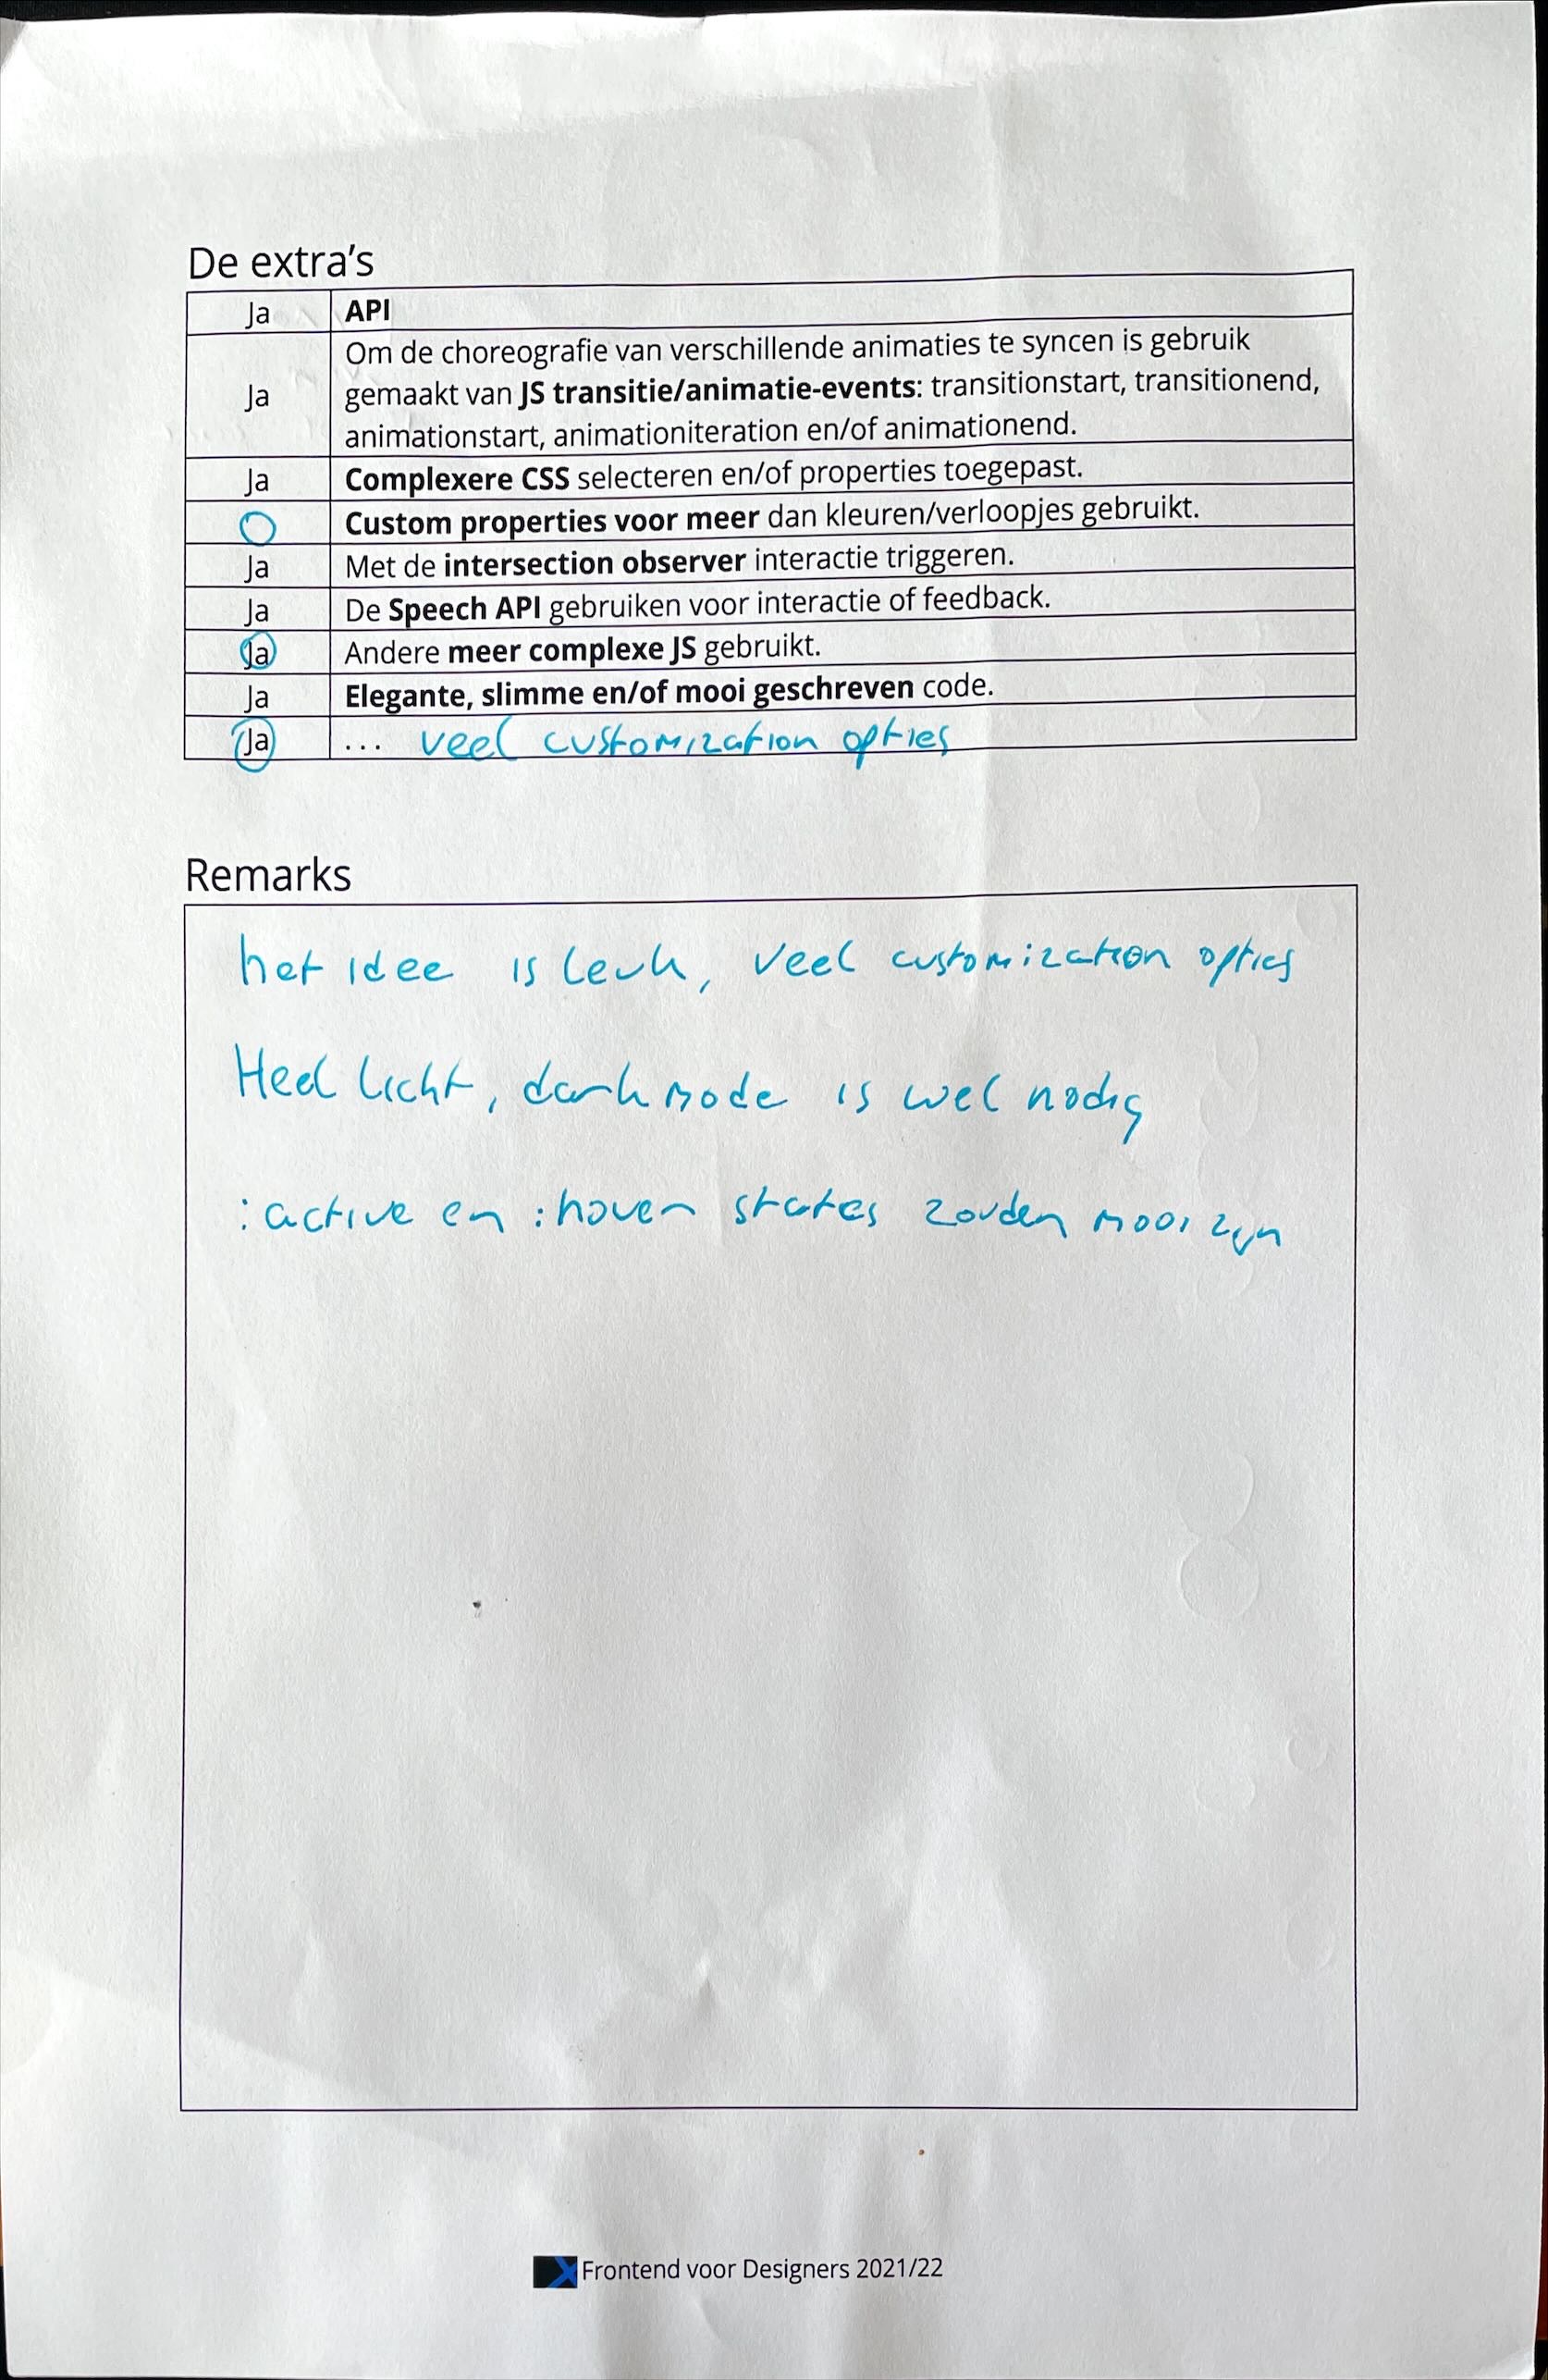 De extra's
Ja API
Ja Om de choreografie van verschillende animaties te syncen is gebruik
gemaakt van JS transitie/animatie-events: transitionstart, transitionend,
animationstart, animationiteration en/of animationend.
Ja Complexere CSS selecteren en/of properties toegepast.
Custom properties voor meer dan kleuren/verloopjes gebruikt.
Ja Met de intersection observer interactie triggeren.
Ja De Speech API gebruiken voor interactie of feedback.
Ja Andere meer complexe JS gebruikt.
Ja Elegante, slimme en/of mooi geschreven code.
Ja ... veel customization opties
Remarks
het idee is leuk, veel customization opties
Heel licht, darkmode is wel nodig
:active en :hover states zouden mooi zijn
Frontend voor Designers 2021/22